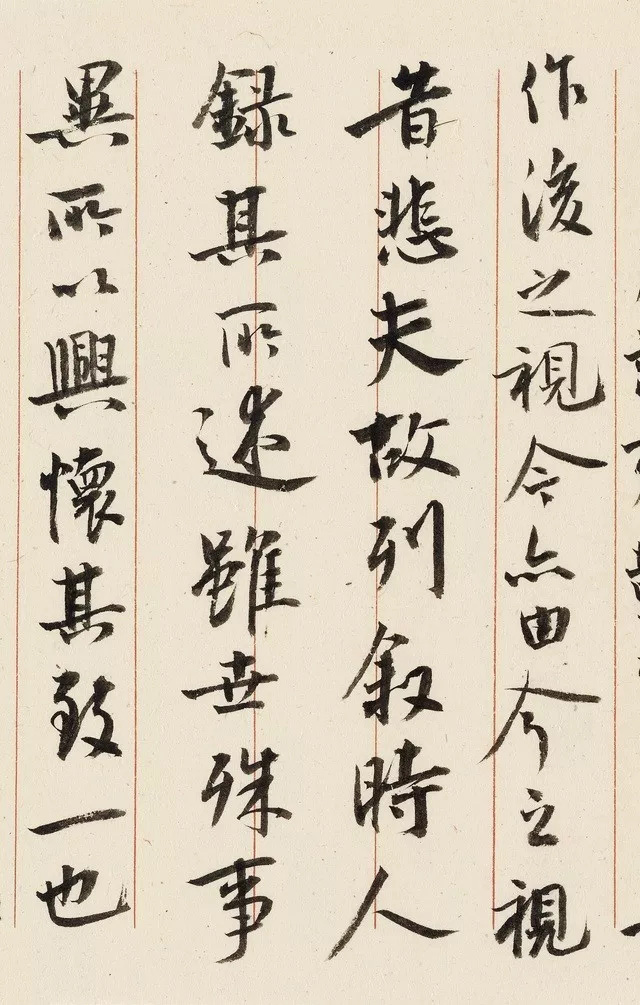 作後之視今亦由今之視
昔悲夫故列叙時人
録其所述雖世殊事
異所以興懷其致一也